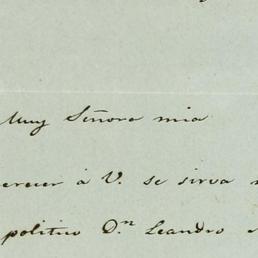 Muy Señora mia
erecer á V. se sirva
politico D.n Leandro